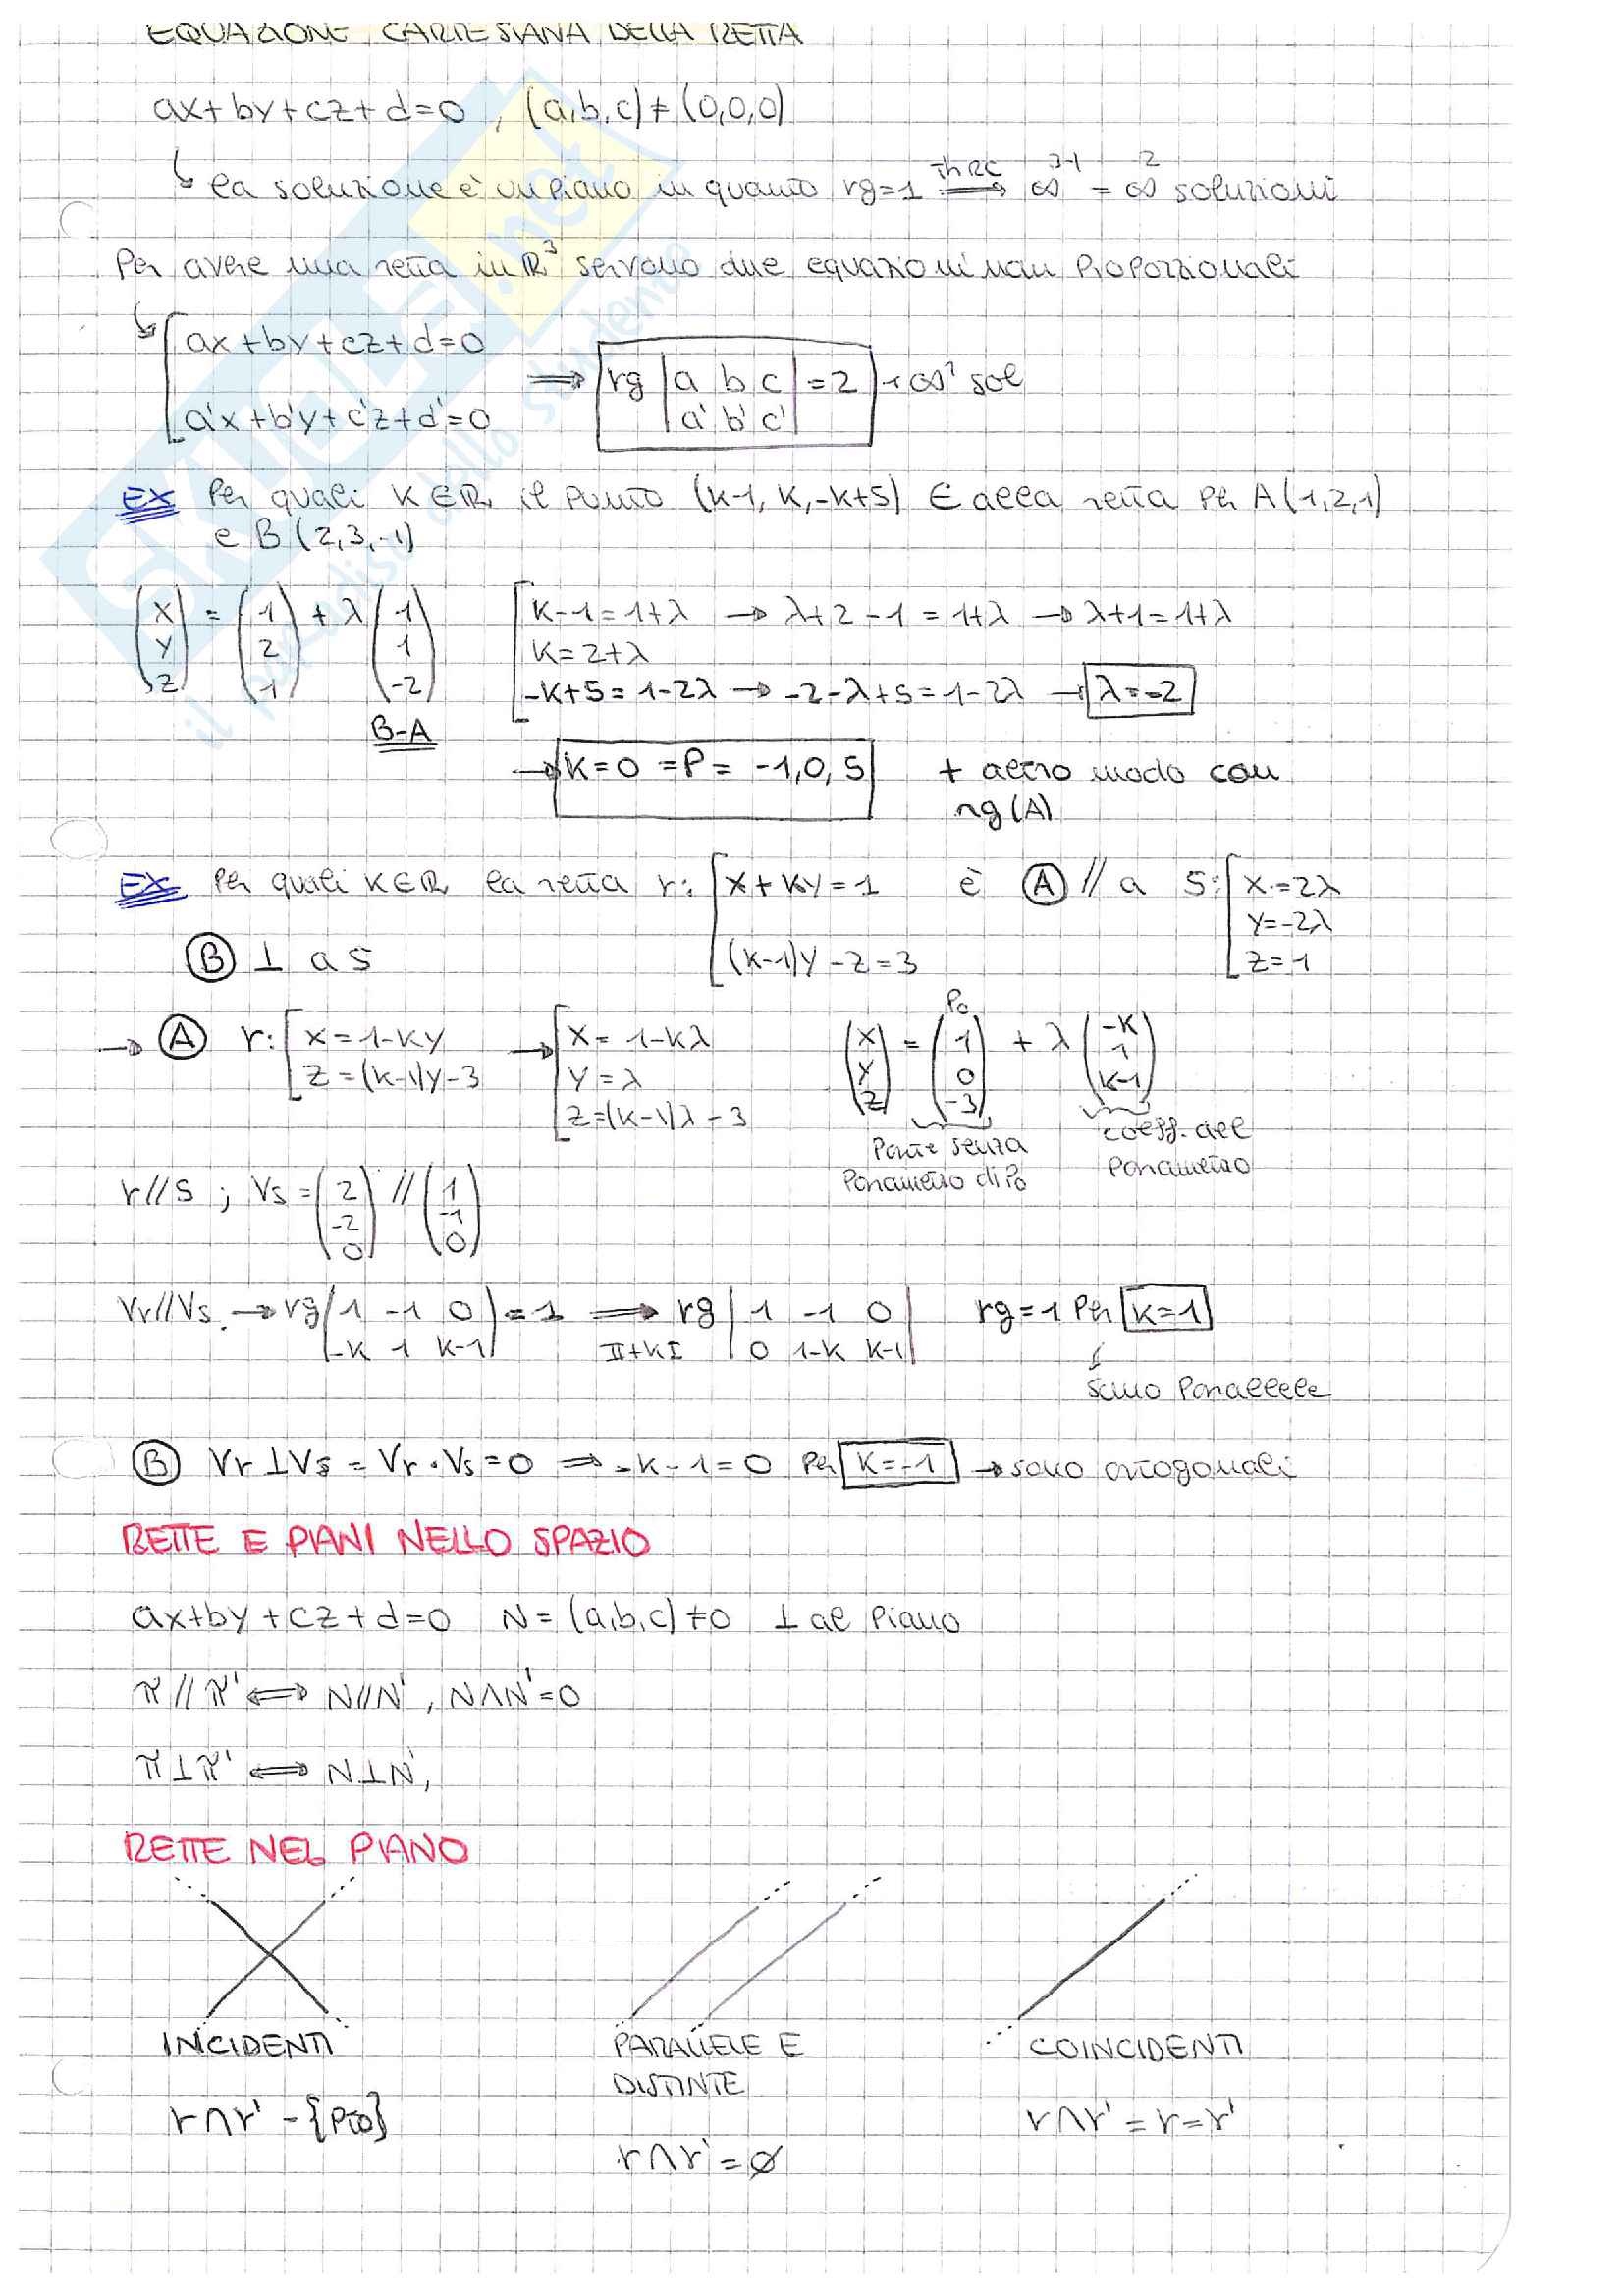 EQUAZIONE CARTESIANA DELLA RETTA
ax+by+cz+d=0, (a,b,c)≠(0,0,0)
↳ la soluzione è un piano in quanto rg=1 ⟹ Th RC ∞³⁻¹ = ∞² soluzioni
Per avere una retta in R³ servono due equazioni non proporzionali
ax+by+cz+d=0
a'x+b'y+c'z+d'=0
⟹ rg |a b c| = 2 → ∞¹ sol
a' b' c'
EX Per quali K∈R il punto (k-1, k, -k+5) ∈ alla retta per A(1,2,1)
e B(2,3,-1)
(x y z) = (1 2 1) + λ (1 1 -2)
B-A
K-1=1+λ → λ+2-1=1+λ → λ+1=1+λ
K=2+λ
-K+5=1-2λ → -2-λ+5=1-2λ → λ=-2
→ K=0 = P = -1,0,5 + altro modo con
rg(A)
EX Per quali K∈R la retta r: x+ky=1 è A // a S: x=2λ
y=-2λ
B ⊥ a S (k-1)y-z=3 z=1
→ A r: x=1-ky → x=1-kλ
z=(k-1)y-3 y=λ
z=(k-1)λ-3
P₀
(x y z) = (1 0 -3) + λ (-k 1 k-1)
Parte senza coeff. del
Parametro di P₀ Parametro
r//s ; Vs = (2 -2 0) // (1 -1 0)
Vr//Vs → rg |1 -1 0| = 1 ⟹ rg |1 -1 0| rg=1 Per K=1
-k 1 k-1 II+KI 0 1-k k-1
sono Parallele
B Vr⊥Vs = Vr·Vs=0 ⟹ -k-1=0 Per K=-1 → sono ortogonali
RETTE E PIANI NELLO SPAZIO
ax+by+cz+d=0 N=(a,b,c)≠0 ⊥ al Piano
π//π' ⟺ N//N', N∧N'=0
π⊥π' ⟺ N⊥N',
RETTE NEL PIANO
INCIDENTI PARALLELE E COINCIDENTI
DISTINTE
r∩r' - {Pto} r∩r'=r=r'
r∩r'=∅
SKUOLA.net
il paradiso dello studente